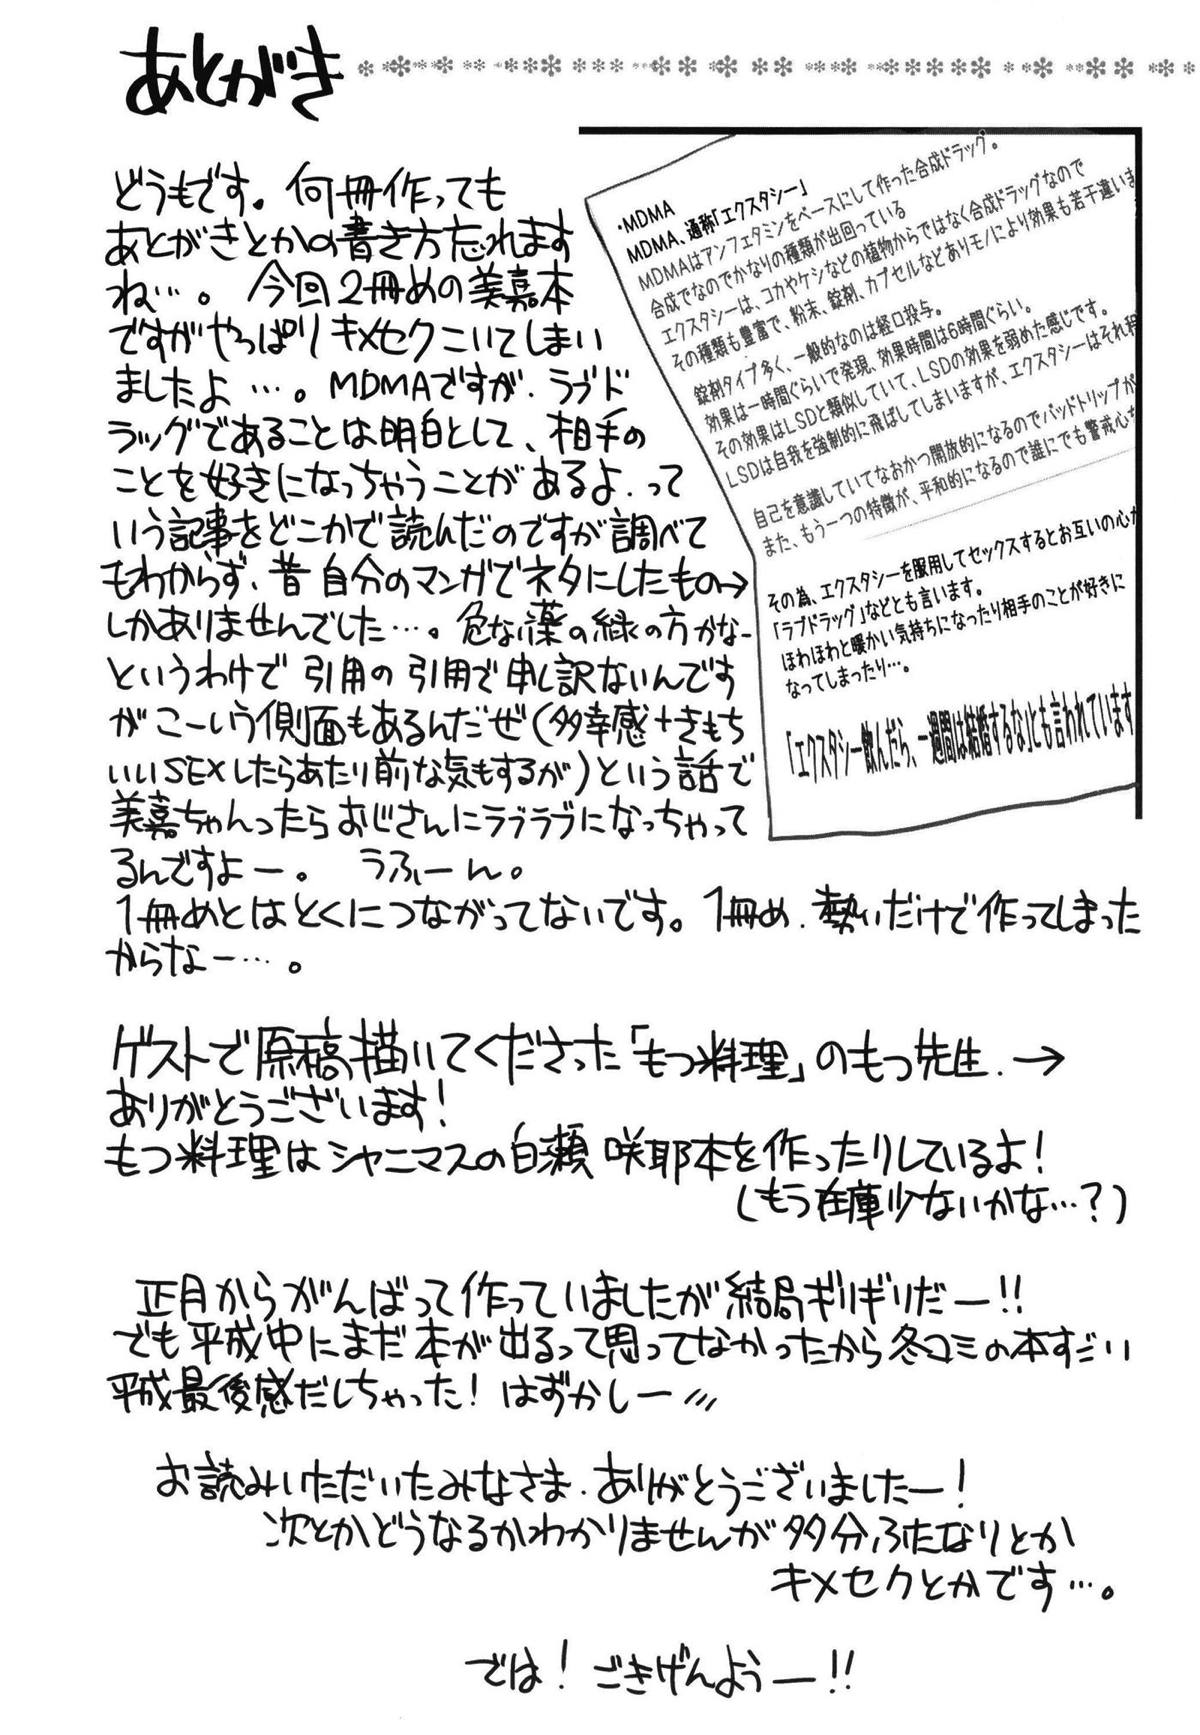 あとがき
どうもです。何冊作っても
あとがきとかの書き方忘れます
ね…。今回2冊めの美嘉本
ですがやっぱりキメセクこいてしまい
ましたよ…。MDMAですが、ラブド
ラッグであることは明白として、相手の
ことを好きになっちゃうことがあるよ、って
いう記事をどこかで読んだのですが調べて
もわからず、昔自分のマンガでネタにしたもの→
しかありませんでした…。危ない薬の縁の方かなー
というわけで引用の引用で申し訳ないんです
がこーいう側面もあるんだぜ(多幸感+きもち
いいSEXしたらあたり前な気もするが)という話で
美嘉ちゃんったらおじさんにラブラブになっちゃって
るんですよー。うふーん。
1冊めとはとくにつながってないです。1冊め、勢いだけで作ってしまった
からなー…。
・MDMA
MDMA、通称「エクスタシー」
MDMAはアンフェタミンをベースにして作った合成ドラッグ。
合成でなのでかなりの種類が出回っている
エクスタシーは、コカやケシなどの植物からではなく合成ドラッグなので
その種類も豊富で、粉末、錠剤、カプセルなどありモノにより効果も若干違いま
錠剤タイプ多く、一般的なのは経口投与。
効果は一時間ぐらいで発現、効果時間は6時間ぐらい。
その効果はLSDと類似していて、LSDの効果を弱めた感じです。
LSDは自我を強制的に飛ばしてしまいますが、エクスタシーはそれ程
自己を意識していてなおかつ開放的になるのでバッドトリップが
また、もう一つの特徴が、平和的になるので誰にでも警戒心も
その為、エクスタシーを服用してセックスするとお互いの心が
「ラブドラッグ」などとも言います。
ほわほわと暖かい気持ちになったり相手のことが好きに
なってしまったり…。
「エクスタシー飲んだら、一週間は結婚するな」とも言われています
ゲストで原稿描いてくださった「もつ料理」のもつ先生、→
ありがとうございます!
もつ料理はシャニマスの白瀬咲耶本を作ったりしているよ!
(もう在庫少ないかな…?)
正月からがんばって作っていましたが結局ギリギリだー!!
でも平成中にまだ本が出るって思ってなかったから冬コミの本すごい
平成最後感だしちゃった!はずかしー
お読みいただいたみなさま、ありがとうございましたー!
次とかどうなるかわかりませんが多分ふたなりとか
キメセクとかです…。
では!ごきげんようー!!